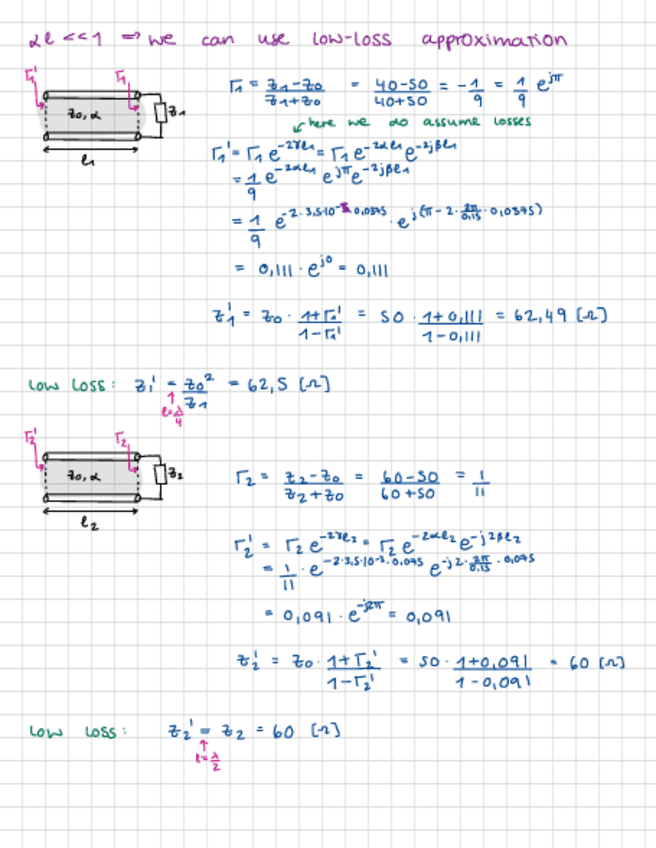 αl << 1 ⇒ we can use low-loss approximation
Γ1' Γ1
Z0, α Z1
l1
Γ1 = (Z1-Z0)/(Z1+Z0) = (40-50)/(40+50) = -1/9 = 1/9 e^jπ
here we do assume losses
Γ1' = Γ1 e^-2γl1 = Γ1 e^-2αl1 e^-2jβl1
= 1/9 e^-2αl1 e^jπ e^-2jβl1
= 1/9 e^-2·3,5·10^-3·0,0375 · e^j(π-2·2π/0,15·0,0375)
= 0,111 · e^j0 = 0,111
Z1' = Z0 · (1+Γ1')/(1-Γ1') = 50 · (1+0,111)/(1-0,111) = 62,49 [Ω]
Low Loss: Z1' = Z0²/Z1 = 62,5 [Ω]
l=λ/4
Γ2' Γ2
Z0, α Z2
l2
Γ2 = (Z2-Z0)/(Z2+Z0) = (60-50)/(60+50) = 1/11
Γ2' = Γ2 e^-2γl2 = Γ2 e^-2αl2 e^-j2βl2
= 1/11 · e^-2·3,5·10^-3·0,075 e^-j2·2π/0,15·0,075
= 0,091 · e^-j2π = 0,091
Z2' = Z0 · (1+Γ2')/(1-Γ2') = 50 · (1+0,091)/(1-0,091) = 60 [Ω]
Low Loss: Z2' = Z2 = 60 [Ω]
l=λ/2